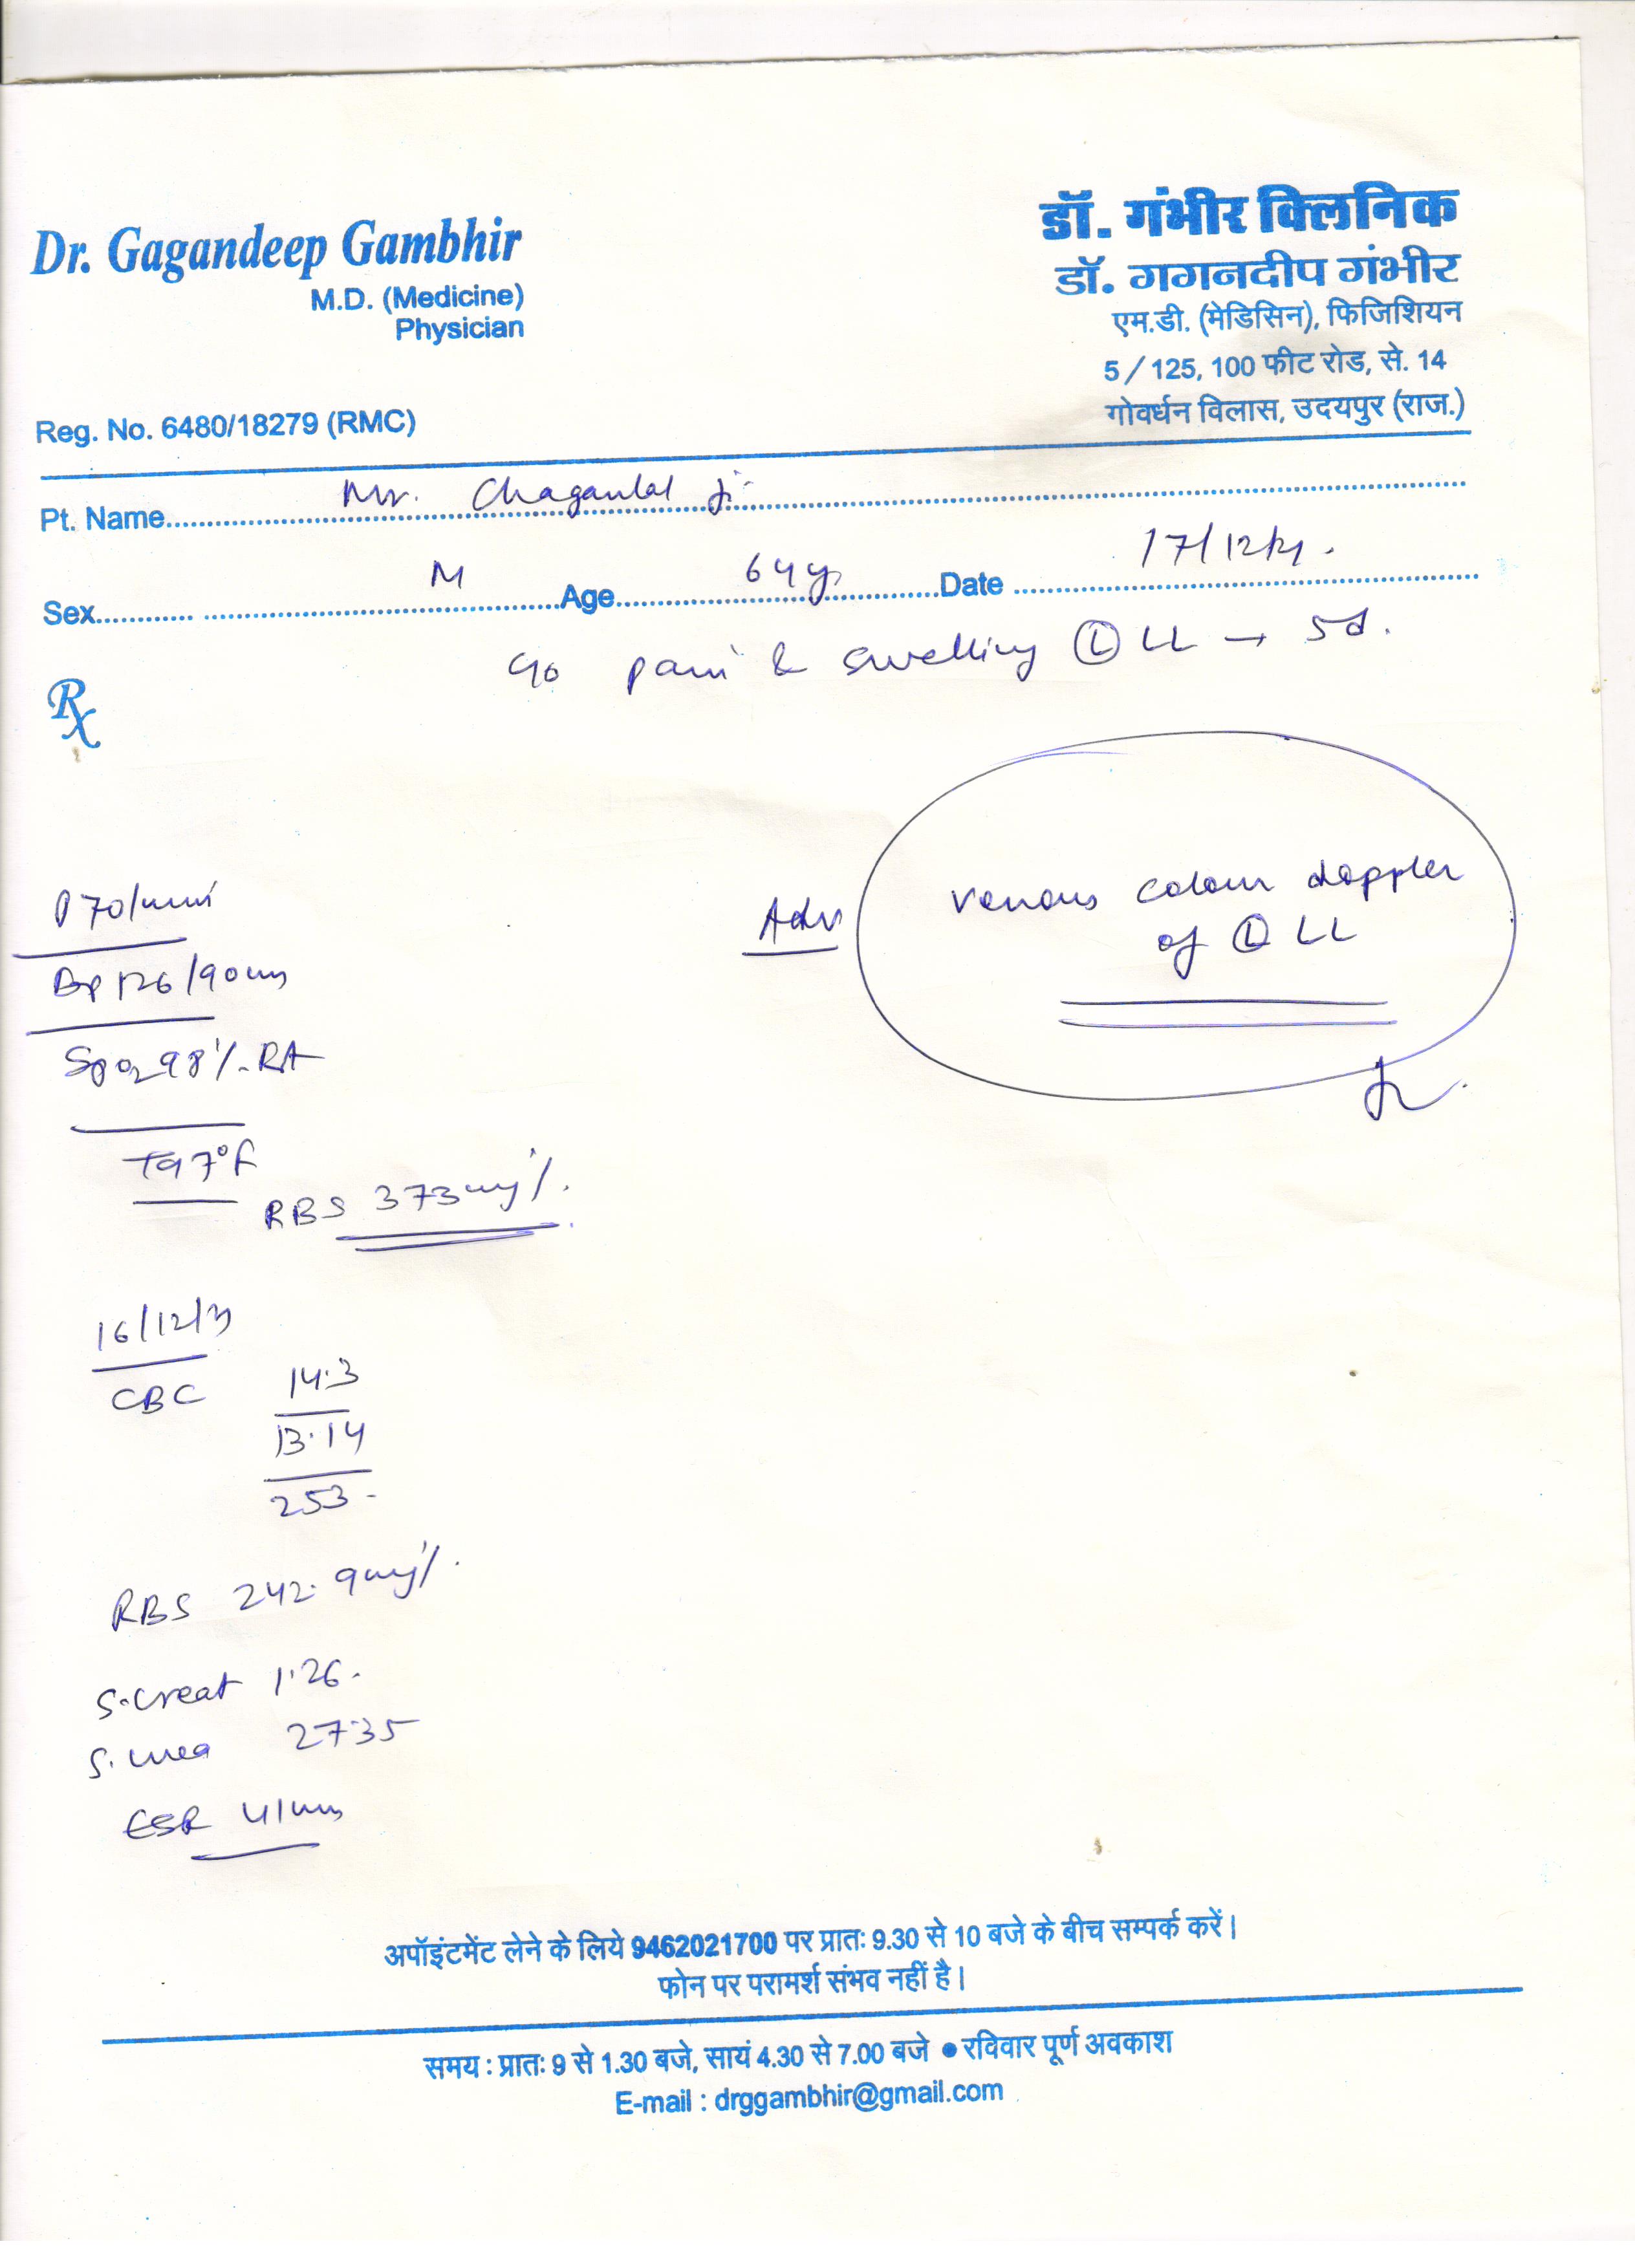 Dr. Gagandeep Gambhir
M.D. (Medicine)
Physician
Reg. No. 6480/18279 (RMC)
डॉ. गंभीर क्लिनिक
डॉ. गगनदीप गंभीर
एम.डी. (मेडिसिन), फिजिशियन
5 / 125, 100 फीट रोड, से. 14
गोवर्धन विलास, उदयपुर (राज.)
Pt. Name Mr. Chaganlal Ji
Sex M Age 64 yr Date 17/12/21.
c/o pain & swelling Ⓛ LL → 5d.
Rx
P 70/min
BP 126/90mm
SpO2 98%. RA
T 97°F
RBS 373mg%.
Adv
venous colour doppler
of Ⓛ LL
16/12/21
CBC 14.3
13.14
253
RBS 242.9mg%.
S.creat 1.26.
S. urea 27.35
ESR 41mm
अपॉइंटमेंट लेने के लिये 9462021700 पर प्रातः 9.30 से 10 बजे के बीच सम्पर्क करें।
फोन पर परामर्श संभव नहीं है।
समय : प्रातः 9 से 1.30 बजे, सायं 4.30 से 7.00 बजे ● रविवार पूर्ण अवकाश
E-mail : drggambhir@gmail.com